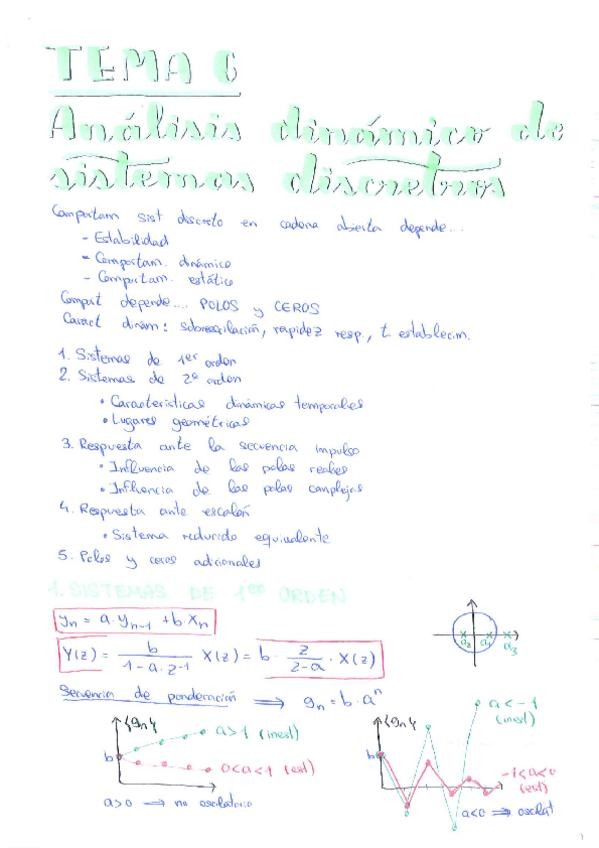 TEMA 6
Análisis dinámico de
sistemas discretos
Comportam sist discreto en cadena abierta depende...
- Estabilidad
- Comportam. dinámico
- Comportam. estático
Comport depende... POLOS y CEROS
Caract dinám: sobreoscilación, rapidez resp, t. establecim.
1. Sistemas de 1er orden
2. Sistemas de 2º orden
• Características dinámicas temporales
• Lugares geométricos
3. Respuesta ante la secuencia impulso
• Influencia de los polos reales
• Influencia de los polos complejos
4. Respuesta ante escalón
• Sistema reducido equivalente
5. Polos y ceros adicionales
1. SISTEMAS DE 1er ORDEN
yn = a·yn-1 + b·xn
Y(z) = b / (1-a·z-1) X(z) = b · z / (z-a) · X(z)
a2 a1 a3
Secuencia de ponderación ⟹ gn = b·aⁿ
{gn}
b
a>1 (inest)
0<a<1 (est)
a>0 ⟹ no oscilatorio
{gn}
b
a<-1
(inest)
-1<a<0
(est)
a<0 ⟹ oscilat
1